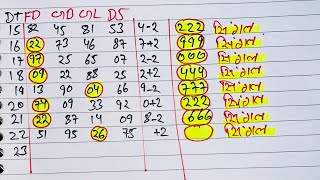 DT FD GD GL DS
15 32 45 81 53 4-2 222 सिंगल
16 22 73 46 87 7+2 999 सिंगल
17 97 25 65 07 2-2 000 सिंगल
18 09 22 88 25 2+2 444 सिंगल
19 13 90 04 66 9-2 777 सिंगल
20 74 09 33 92 0+2 222 सिंगल
21 22 87 14 09 8-2 666 सिंगल
22 51 95 26 75 +2 सिंगल
23